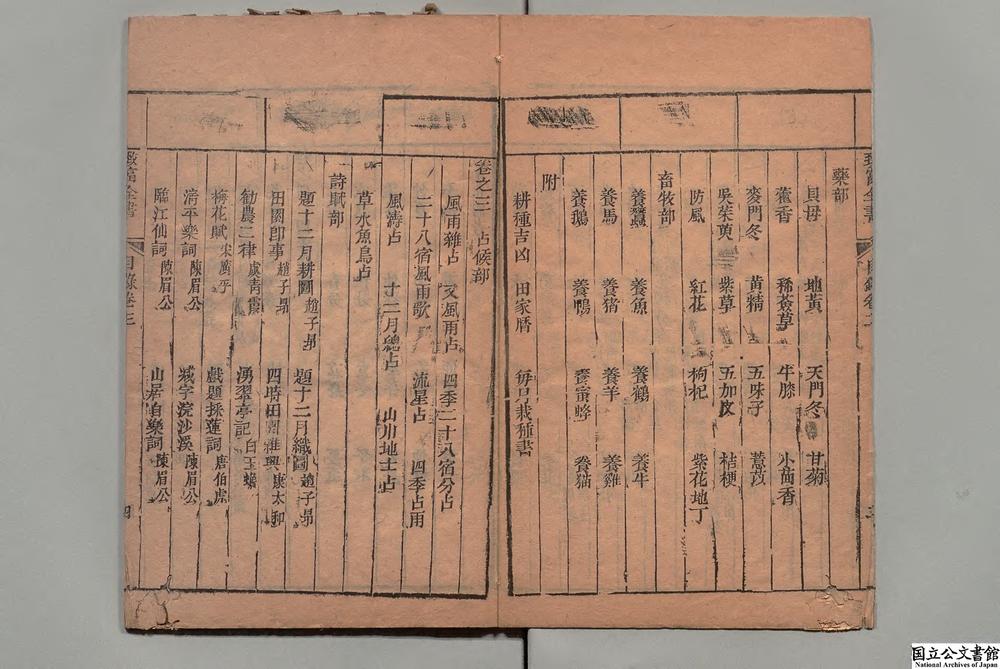 致富全書 目錄卷二
藥部
貝母 地黃 天門冬 甘菊
藿香 稀薟草 牛膝 小茴香
麥門冬 黃精 五味子 薏苡
吳茱萸 紫草 五加皮 桔梗
防風 紅花 枸杞 紫花地丁
畜牧部
養蠶 養魚 養鶴 養牛
養馬 養猪 養羊 養雞
養鵝 養鴨 養蜜蜂 養猫
附
耕種吉凶 田家曆 每月栽種書
卷之三 占候部
風雨雜占 又風雨占 四季二十八宿分占
二十八宿風雨歌 流星占 四季占雨
風濤占 十二月總占 山川地土占
草水魚鳥占
詩賦部
題十二月耕圖 趙子昂 題十二月織圖 趙子昂
田園卽事 趙子昂 四時田園雜興 康太和
勸農二律 虞青霞 湧翠亭記 白玉蟾
梅花賦 宋廣平 戲題採蓮詞 唐伯虎
清平樂詞 陳眉公 浣沙溪 陳眉公
臨江仙詞 陳眉公 山居自樂詞 陳眉公
致富全書 目錄卷三 四
国立公文書館
National Archives of Japan